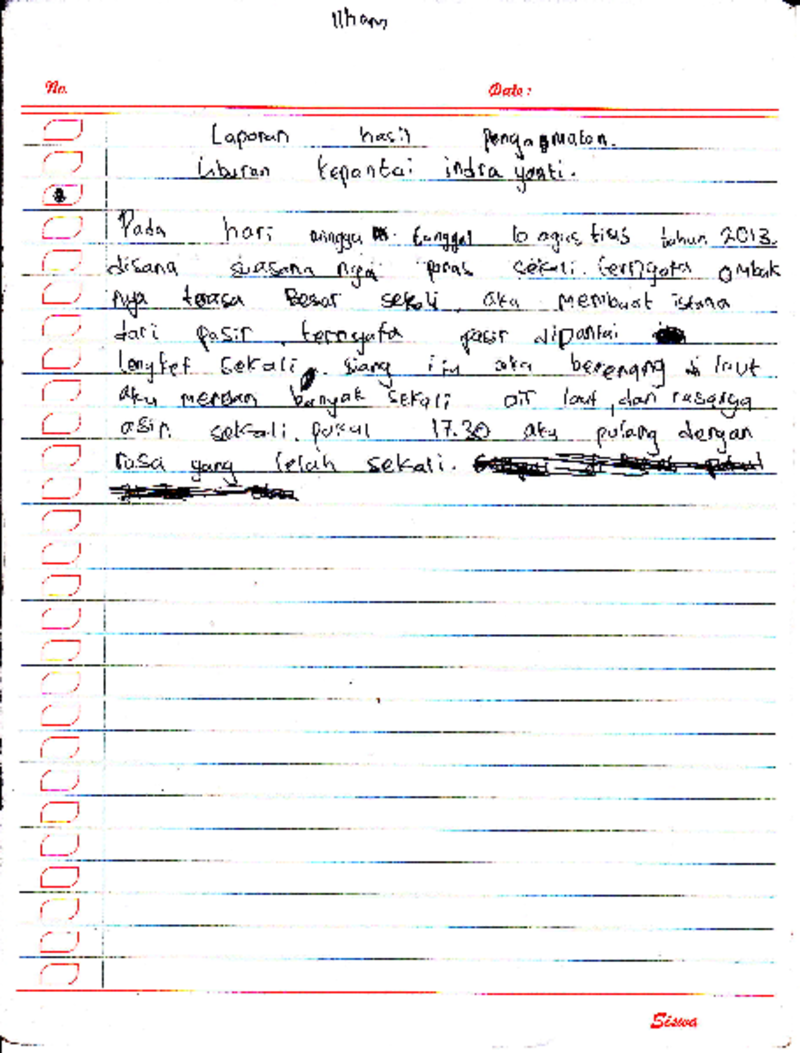 Ilham
No. Date:
Laporan hasil pengagmatan.
Liburan kepantai indra yanti.
Pada hari minggu tanggal 10 agustius tahun 2013.
disana suasana nya panas sekali. ternyata ombak
nya terasa Besar sekali. aku membuat istana
dari pasir, ternyata pasir dipantai
lengket sekali. siang itu aku berenang di laut
aku menelan banyak sekali air laut, dan rasanya
asin sekali. pukul 17.30 aku pulang dengan
rasa yang lelah sekali.
Siswa